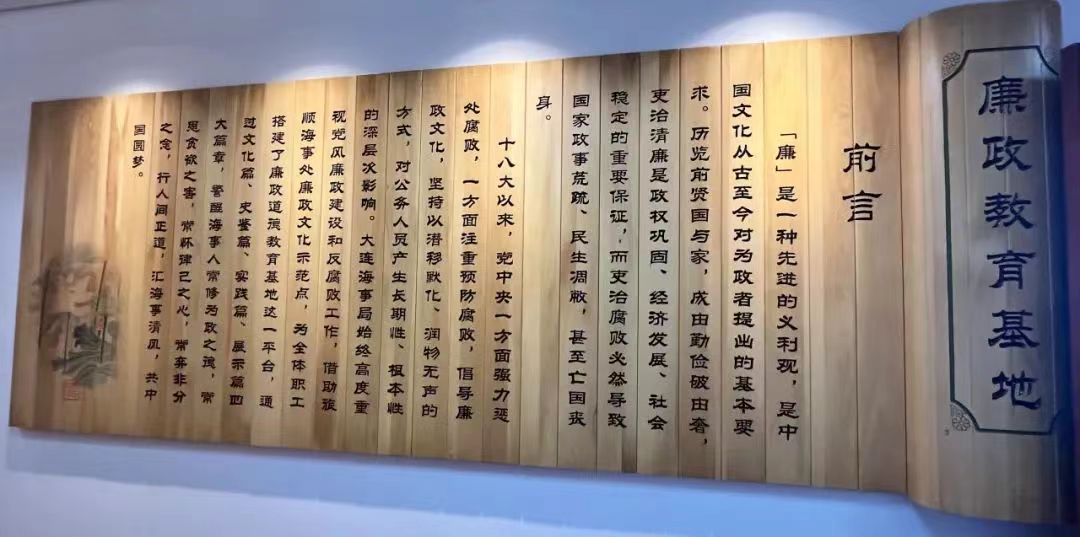 廉政教育基地
前言
「廉」是一种先进的义利观，是中
国文化从古至今对为政者提出的基本要
求。历览前贤国与家，成由勤俭破由奢，
吏治清廉是政权巩固、经济发展、社会
稳定的重要保证，而吏治腐败必然导致
国家政事荒疏、民生凋敝，甚至亡国丧
身。
十八大以来，党中央一方面强力惩
处腐败，一方面注重预防腐败，倡导廉
政文化，坚持以潜移默化、润物无声的
方式，对公务人员产生长期性、根本性
的深层次影响。大连海事局始终高度重
视党风廉政建设和反腐败工作，借助旅
顺海事处廉政文化示范点，为全体职工
搭建了廉政道德教育基地这一平台，通
过文化篇、史鉴篇、实践篇、展示篇四
大篇章，警醒海事人常修为政之德，常
思贪欲之害，常怀律己之心，常弃非分
之念，行人间正道，汇海事清风，共中
国圆梦。